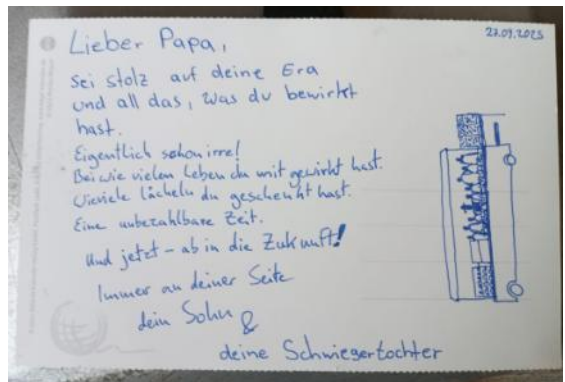 27.09.2025
Lieber Papa,
sei stolz auf deine Era
und all das, was du bewirkt
hast.
Eigentlich schon irre!
Bei wie vielen Leben du mit gewirkt hast.
Wieviele lächeln du geschenkt hast.
Eine unbezahlbare Zeit.
Und jetzt – ab in die Zukunft!
Immer an deiner Seite
dein Sohn &
deine Schwiegertochter